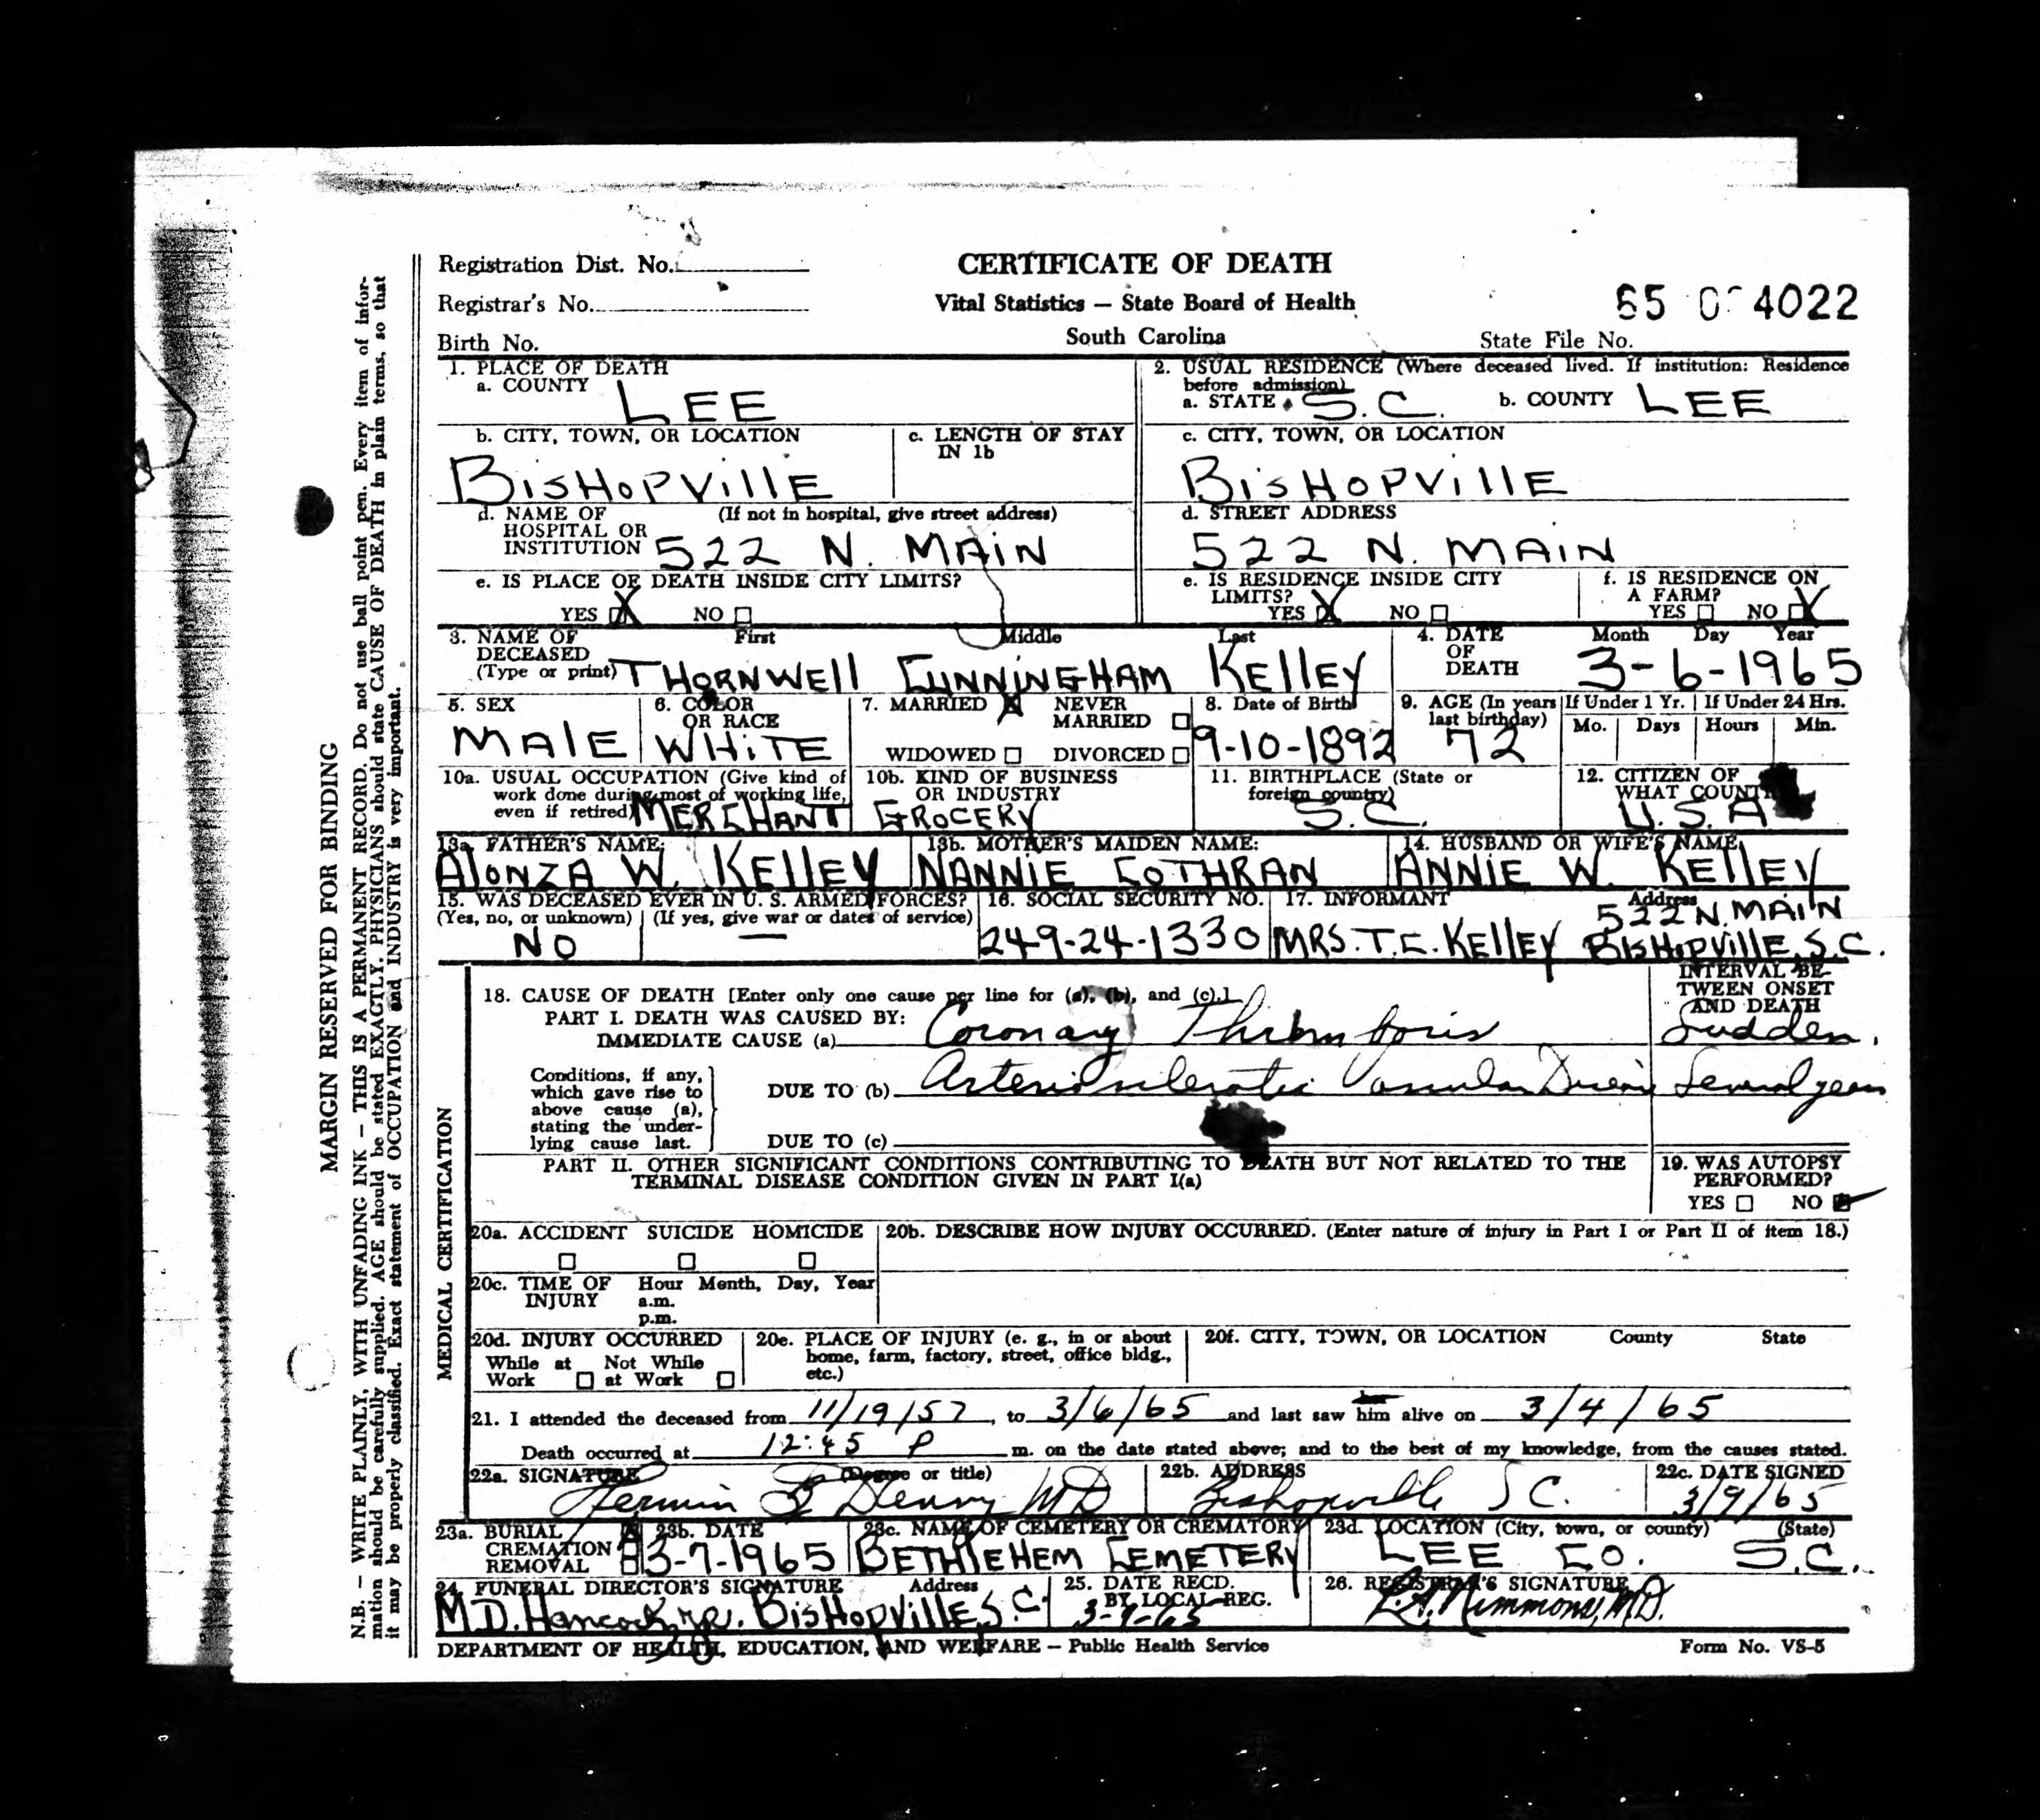 Registration Dist. No.
CERTIFICATE OF DEATH
Registrar's No.
Vital Statistics — State Board of Health
65 0 4022
Birth No.
South Carolina
State File No.
1. PLACE OF DEATH
a. COUNTY LEE
2. USUAL RESIDENCE (Where deceased lived. If institution: Residence
before admission)
a. STATE S.C. b. COUNTY LEE
b. CITY, TOWN, OR LOCATION
BISHOPVILLE
c. LENGTH OF STAY
IN 1b
c. CITY, TOWN, OR LOCATION
BISHOPVILLE
d. NAME OF (If not in hospital, give street address)
HOSPITAL OR
INSTITUTION 522 N. MAIN
d. STREET ADDRESS
522 N. MAIN
e. IS PLACE OF DEATH INSIDE CITY LIMITS?
YES X NO
e. IS RESIDENCE INSIDE CITY
LIMITS?
YES X NO
f. IS RESIDENCE ON
A FARM?
YES NO X
3. NAME OF First Middle Last
DECEASED
(Type or print) THORNWELL CUNNINGHAM KELLEY
4. DATE Month Day Year
OF
DEATH 3-6-1965
5. SEX
MALE
6. COLOR
OR RACE
WHITE
7. MARRIED X NEVER
MARRIED
WIDOWED DIVORCED
8. Date of Birth
9-10-1892
9. AGE (In years
last birthday)
72
If Under 1 Yr. If Under 24 Hrs.
Mo. Days Hours Min.
10a. USUAL OCCUPATION (Give kind of
work done during most of working life,
even if retired) MERCHANT
10b. KIND OF BUSINESS
OR INDUSTRY
GROCERY
11. BIRTHPLACE (State or
foreign country)
S.C.
12. CITIZEN OF
WHAT COUNT
U.S.A
13a. FATHER'S NAME:
ALONZA W. KELLEY
13b. MOTHER'S MAIDEN NAME:
NANNIE COTHRAN
14. HUSBAND OR WIFE'S NAME
ANNIE W. KELLEY
15. WAS DECEASED EVER IN U. S. ARMED FORCES?
(Yes, no, or unknown) (If yes, give war or dates of service)
NO —
16. SOCIAL SECURITY NO.
249-24-1330
17. INFORMANT Address
522 N. MAIN
MRS. T.C. KELLEY BISHOPVILLE, S.C.
MEDICAL CERTIFICATION
18. CAUSE OF DEATH [Enter only one cause per line for (a), (b), and (c).]
INTERVAL BE-
TWEEN ONSET
AND DEATH
PART I. DEATH WAS CAUSED BY:
IMMEDIATE CAUSE (a) Coronary Thrombosis Sudden.
Conditions, if any,
which gave rise to
above cause (a),
stating the under-
lying cause last.
DUE TO (b) Arteriosclerotic Vascular Disease Several years
DUE TO (c)
PART II. OTHER SIGNIFICANT CONDITIONS CONTRIBUTING TO DEATH BUT NOT RELATED TO THE
TERMINAL DISEASE CONDITION GIVEN IN PART I(a)
19. WAS AUTOPSY
PERFORMED?
YES NO
20a. ACCIDENT SUICIDE HOMICIDE
20b. DESCRIBE HOW INJURY OCCURRED. (Enter nature of injury in Part I or Part II of item 18.)
20c. TIME OF Hour Month, Day, Year
INJURY a.m.
p.m.
20d. INJURY OCCURRED
While at Not While
Work at Work
20e. PLACE OF INJURY (e. g., in or about
home, farm, factory, street, office bldg.,
etc.)
20f. CITY, TOWN, OR LOCATION County State
21. I attended the deceased from 11/19/57, to 3/6/65 and last saw him alive on 3/4/65
Death occurred at 12:45 P m. on the date stated above; and to the best of my knowledge, from the causes stated.
22a. SIGNATURE (Degree or title)
MD
22b. ADDRESS
Bishopville S C.
22c. DATE SIGNED
3/9/65
23a. BURIAL X
CREMATION
REMOVAL
23b. DATE
3-7-1965
23c. NAME OF CEMETERY OR CREMATORY
BETHLEHEM CEMETERY
23d. LOCATION (City, town, or county) (State)
LEE CO. S.C.
24. FUNERAL DIRECTOR'S SIGNATURE Address
M.D. Hancock, Jr. BISHOPVILLE, S.C.
25. DATE RECD.
BY LOCAL REG.
3-9-65
26. REGISTRAR'S SIGNATURE
Nimmons, M.D.
DEPARTMENT OF HEALTH, EDUCATION, AND WELFARE — Public Health Service
Form No. VS-5
MARGIN RESERVED FOR BINDING
N.B. — WRITE PLAINLY, WITH UNFADING INK — THIS IS A PERMANENT RECORD. Do not use ball point pen. Every item of infor-
mation should be carefully supplied. AGE should be stated EXACTLY. PHYSICIANS should state CAUSE OF DEATH in plain terms, so that
it may be properly classified. Exact statement of OCCUPATION and INDUSTRY is very important.